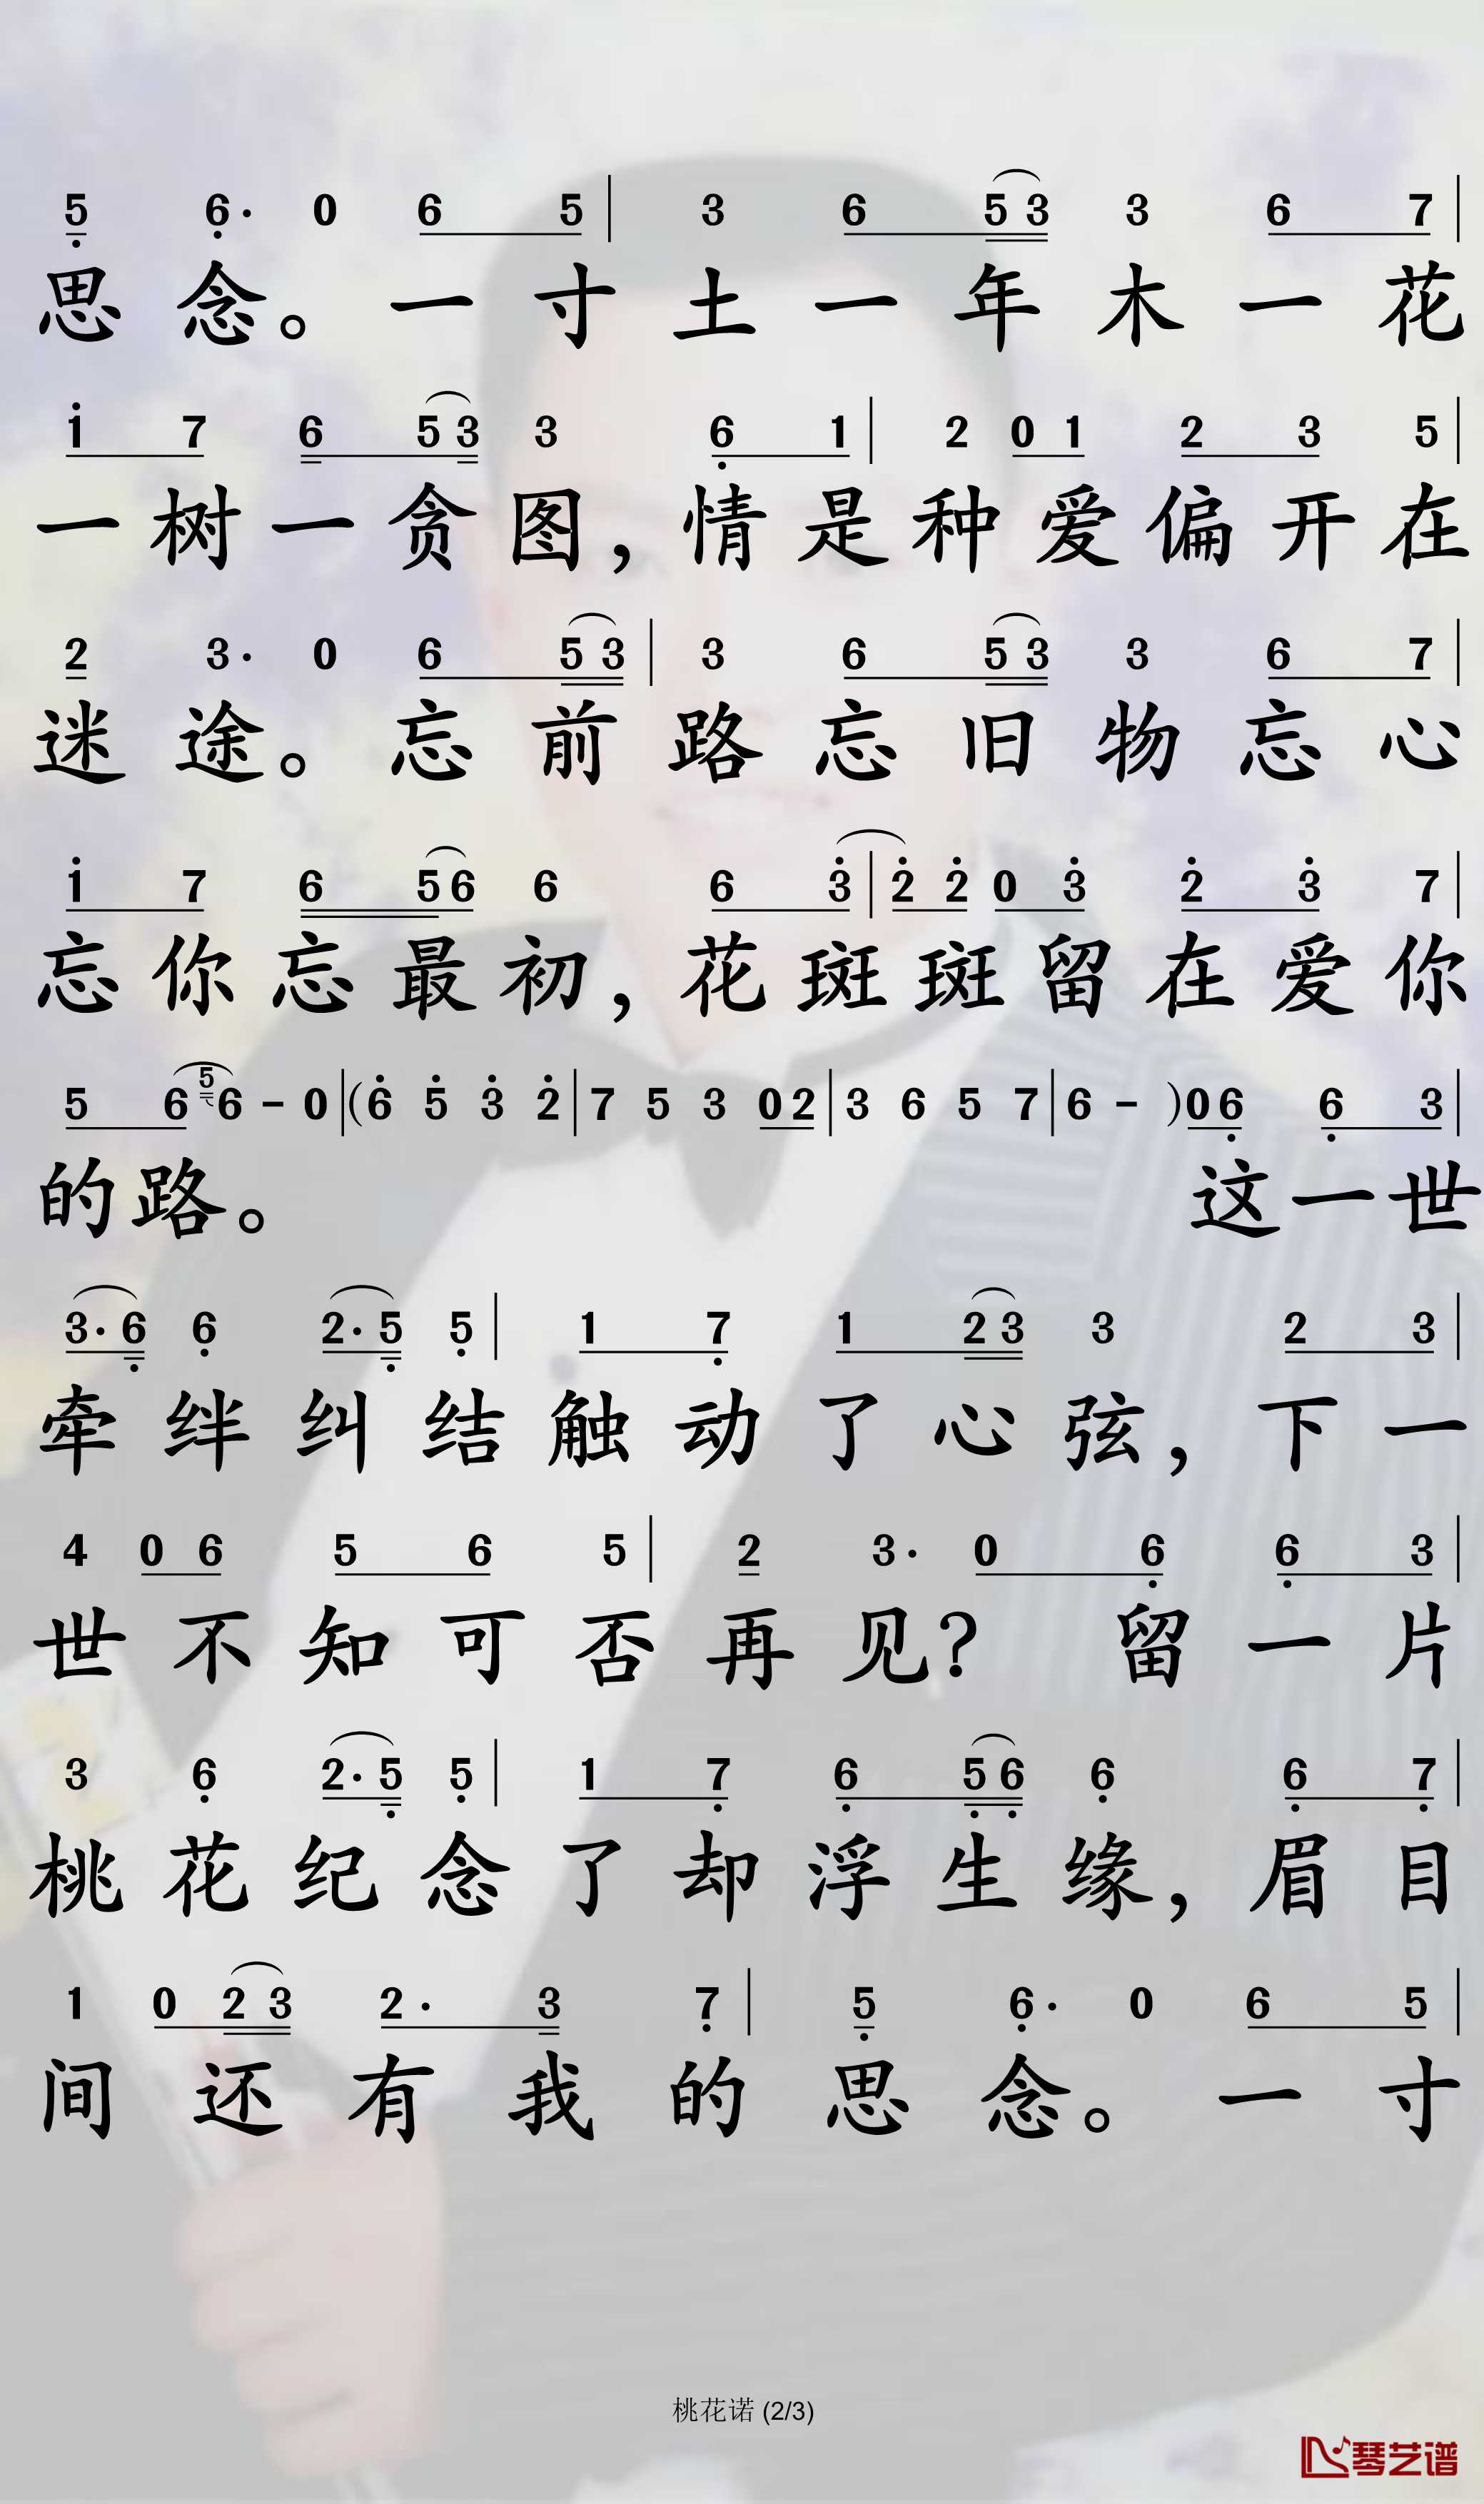 5 6· 0 6 5 | 3 6 5 3 3 6 7 |
思念。一寸土一年木一花
1 7 6 5 3 3 6 1 | 2 0 1 2 3 5 |
一树一贪图，情是种爱偏开在
2 3· 0 6 5 3 | 3 6 5 3 3 6 7 |
迷途。忘前路忘旧物忘心
1 7 6 5 6 6 6 3 | 2 2 0 3 2 3 7 |
忘你忘最初，花斑斑留在爱你
5 6 5 6 - 0 | (6 5 3 2 | 7 5 3 0 2 | 3 6 5 7 | 6 - ) 0 6 6 3 |
的路。 这一世
3· 6 6 2· 5 5 | 1 7 1 2 3 3 2 3 |
牵绊纠结触动了心弦，下一
4 0 6 5 6 5 | 2 3· 0 6 6 3 |
世不知可否再见？ 留一片
3 6 2· 5 5 | 1 7 6 5 6 6 6 7 |
桃花纪念了却浮生缘，眉目
1 0 2 3 2· 3 7 | 5 6· 0 6 5 |
间还有我的思念。一寸
桃花诺 (2/3)
琴艺谱